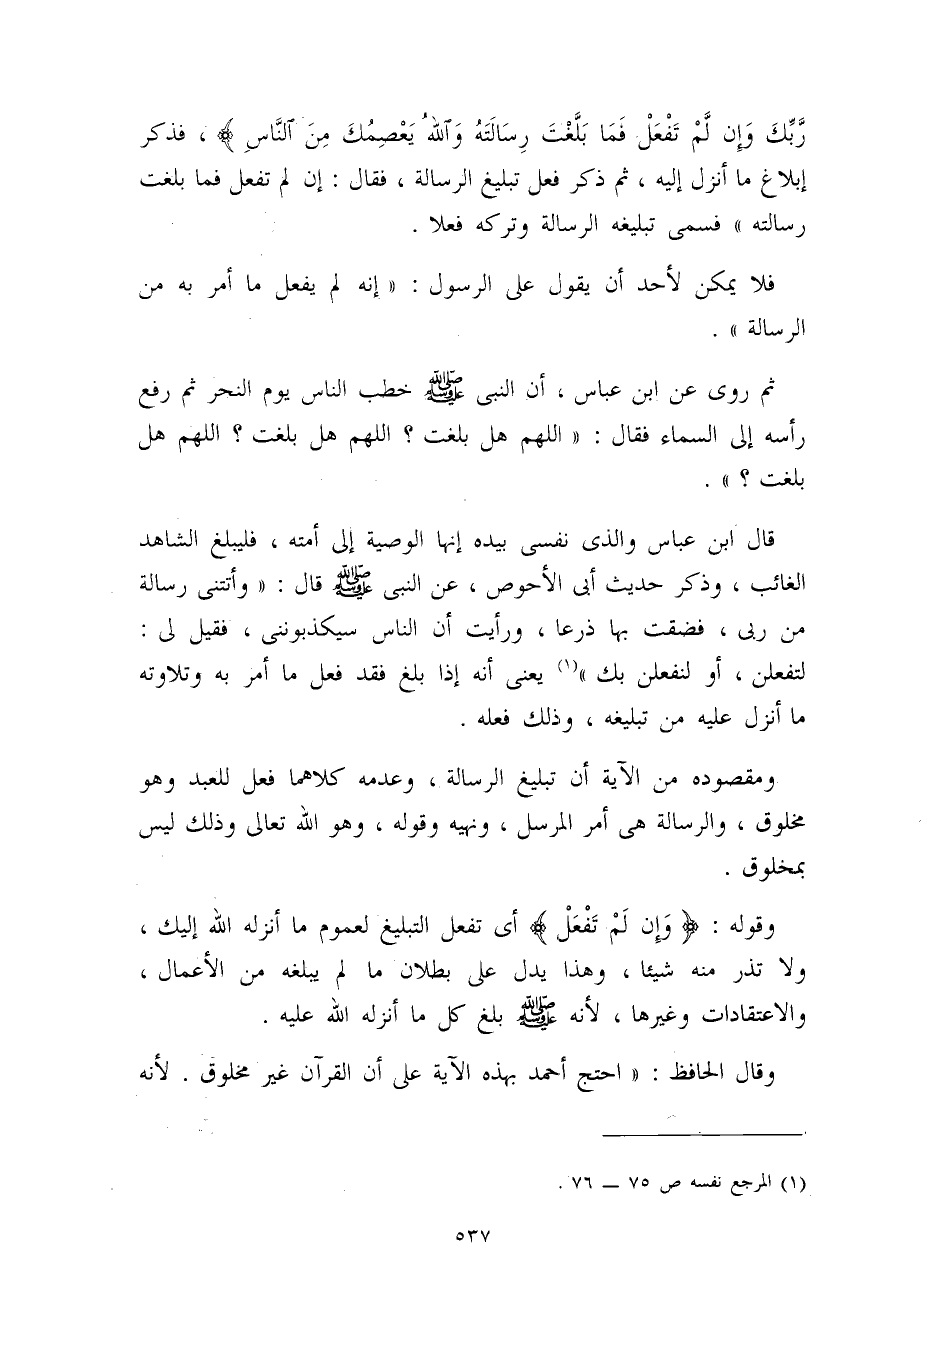 رَّبِّكَ وَإِن لَّمْ تَفْعَلْ فَمَا بَلَّغْتَ رِسَالَتَهُ وَٱللَّهُ يَعْصِمُكَ مِنَ ٱلنَّاسِ ﴾ ، فذكر
إبلاغ ما أنزل إليه ، ثم ذكر فعل تبليغ الرسالة ، فقال : إن لم تفعل فما بلغت
رسالته » فسمى تبليغه الرسالة وتركه فعلا .
فلا يمكن لأحد أن يقول على الرسول : « إنه لم يفعل ما أمر به من
الرسالة » .
ثم روى عن ابن عباس ، أن النبى ﷺ خطب الناس يوم النحر ثم رفع
رأسه إلى السماء فقال : « اللهم هل بلغت ؟ اللهم هل بلغت ؟ اللهم هل
بلغت ؟ » .
قال ابن عباس والذى نفسى بيده إنها الوصية إلى أمته ، فليبلغ الشاهد
الغائب ، وذكر حديث أبى الأحوص ، عن النبى ﷺ قال : « وأتتنى رسالة
من ربى ، فضقت بها ذرعا ، ورأيت أن الناس سيكذبوننى ، فقيل لى :
لتفعلن ، أو لنفعلن بك »(١) يعنى أنه إذا بلغ فقد فعل ما أمر به وتلاوته
ما أنزل عليه من تبليغه ، وذلك فعله .
ومقصوده من الآية أن تبليغ الرسالة ، وعدمه كلاهما فعل للعبد وهو
مخلوق ، والرسالة هى أمر المرسل ، ونهيه وقوله ، وهو الله تعالى وذلك ليس
بمخلوق .
وقوله : ﴿ وَإِن لَمْ تَفْعَلْ ﴾ أى تفعل التبليغ لعموم ما أنزله الله إليك ،
ولا تذر منه شيئا ، وهذا يدل على بطلان ما لم يبلغه من الأعمال ،
والاعتقادات وغيرها ، لأنه ﷺ بلغ كل ما أنزله الله عليه .
وقال الحافظ : « احتج أحمد بهذه الآية على أن القرآن غير مخلوق . لأنه
(١) المرجع نفسه ص ٧٥ ــ ٧٦ .
٥٣٧